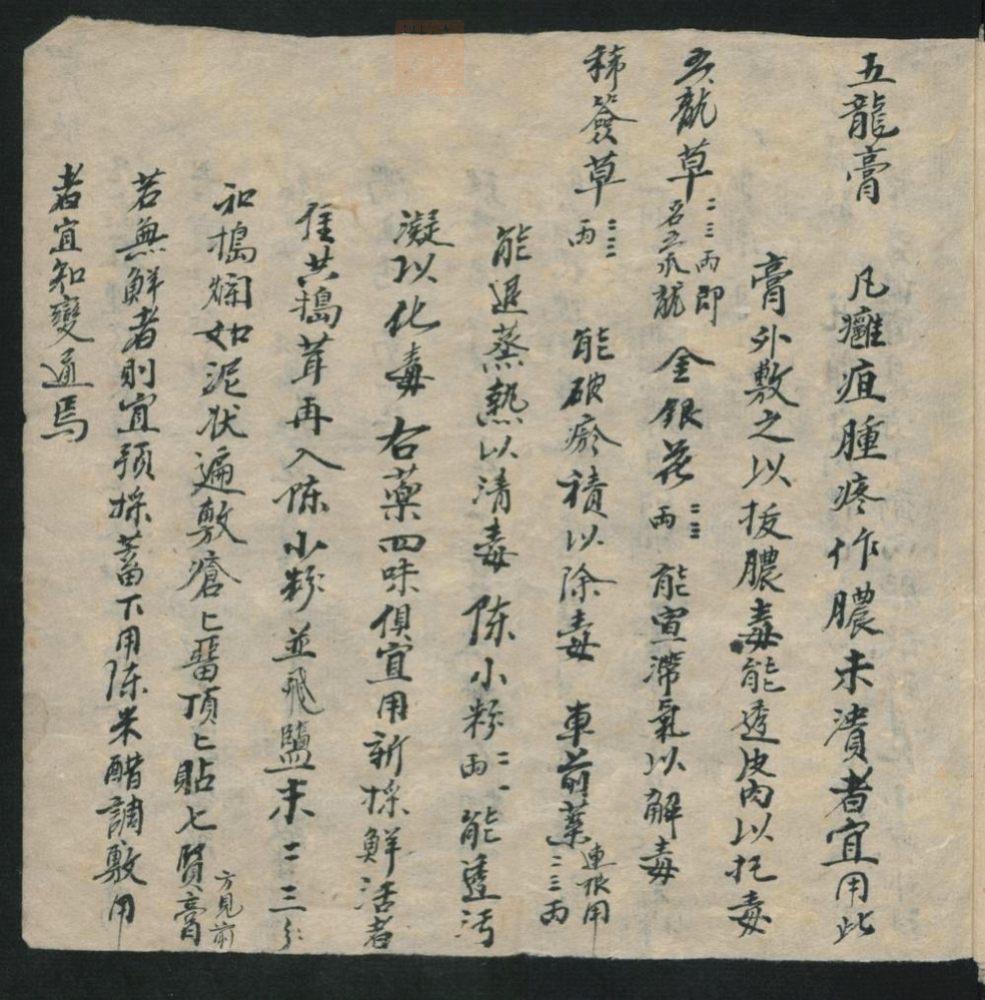 五龍膏 凡癰疽腫疼作膿未潰者宜用此
膏外敷之以拔膿毒能透皮肉以托毒
五龍草二三兩即名之爪龍 金銀花二三兩 能宣滯氣以解毒
稀簽草二三兩 能破瘀積以除毒 車前葉連根用二三兩
能退蒸熱以清毒 陳小粉二一兩 能透汚
凝以化毒 右藥四味俱宜用新採鮮活者
隹共搗茸再入陳小粉並飛鹽末二三分
和搗爛如泥状遍敷瘡上畱頂上貼七賢膏方見前
若無鮮者則宜預採蓄下用陳米醋調敷用
者宜知變通焉